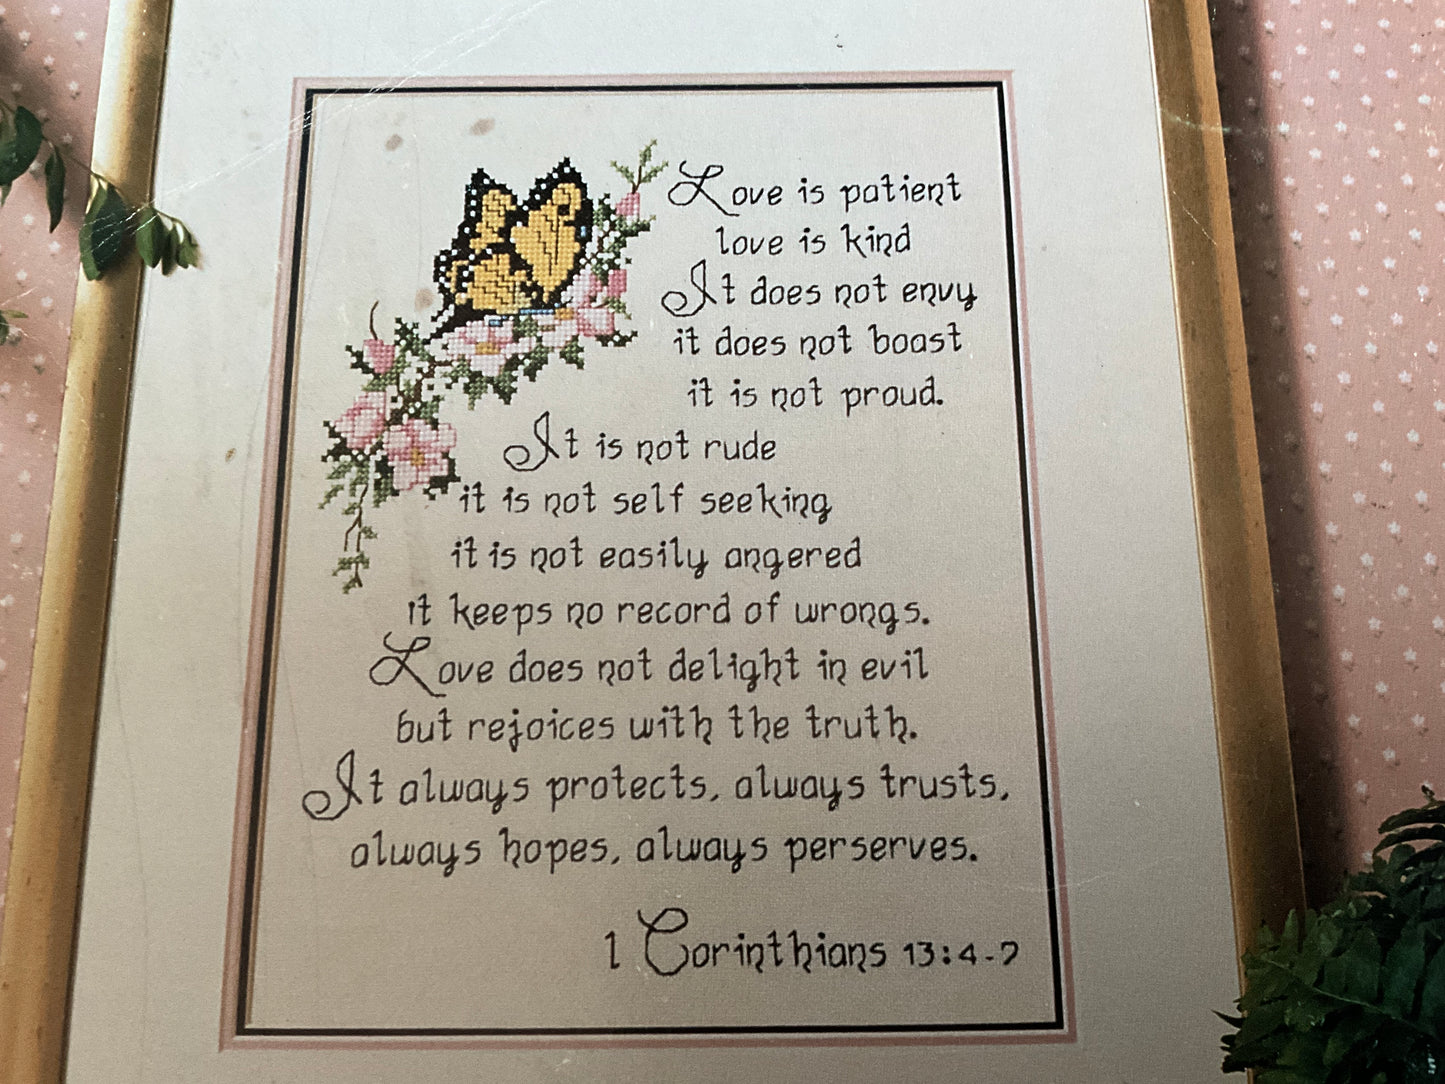 Love is patient
love is kind
It does not envy
it does not boast
it is not proud.
It is not rude
it is not self seeking
it is not easily angered
it keeps no record of wrongs.
Love does not delight in evil
but rejoices with the truth.
It always protects, always trusts,
always hopes, always perserves.
1 Corinthians 13:4-7